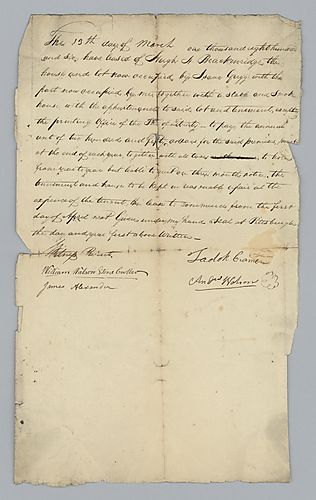 The 13th day of March one thousand eight hundred
and six, have leased of Hugh H Brackenridge the
house and lot now occupied by Isaac Gregg with the
part now occupied by me, together with a stable and
house, with the appurtenances to said lot and tenements,
the printing office of the Tree of Liberty to pay the amount
of two hundred and fifty dollars for the said premises,
at the end of each year, together with all taxes to hold
from year to year but liable to quit on three months notice. The
tenement and to be kept in reasonable repair at the
expence of the tenant. the lease to commence from the first
day of April next Given under my hand Seal at Pittsburgh
the day and year first above written
Witness Present
Zadok Cramer
William Watson Stone Cutter
Andw Watson
James Alexander